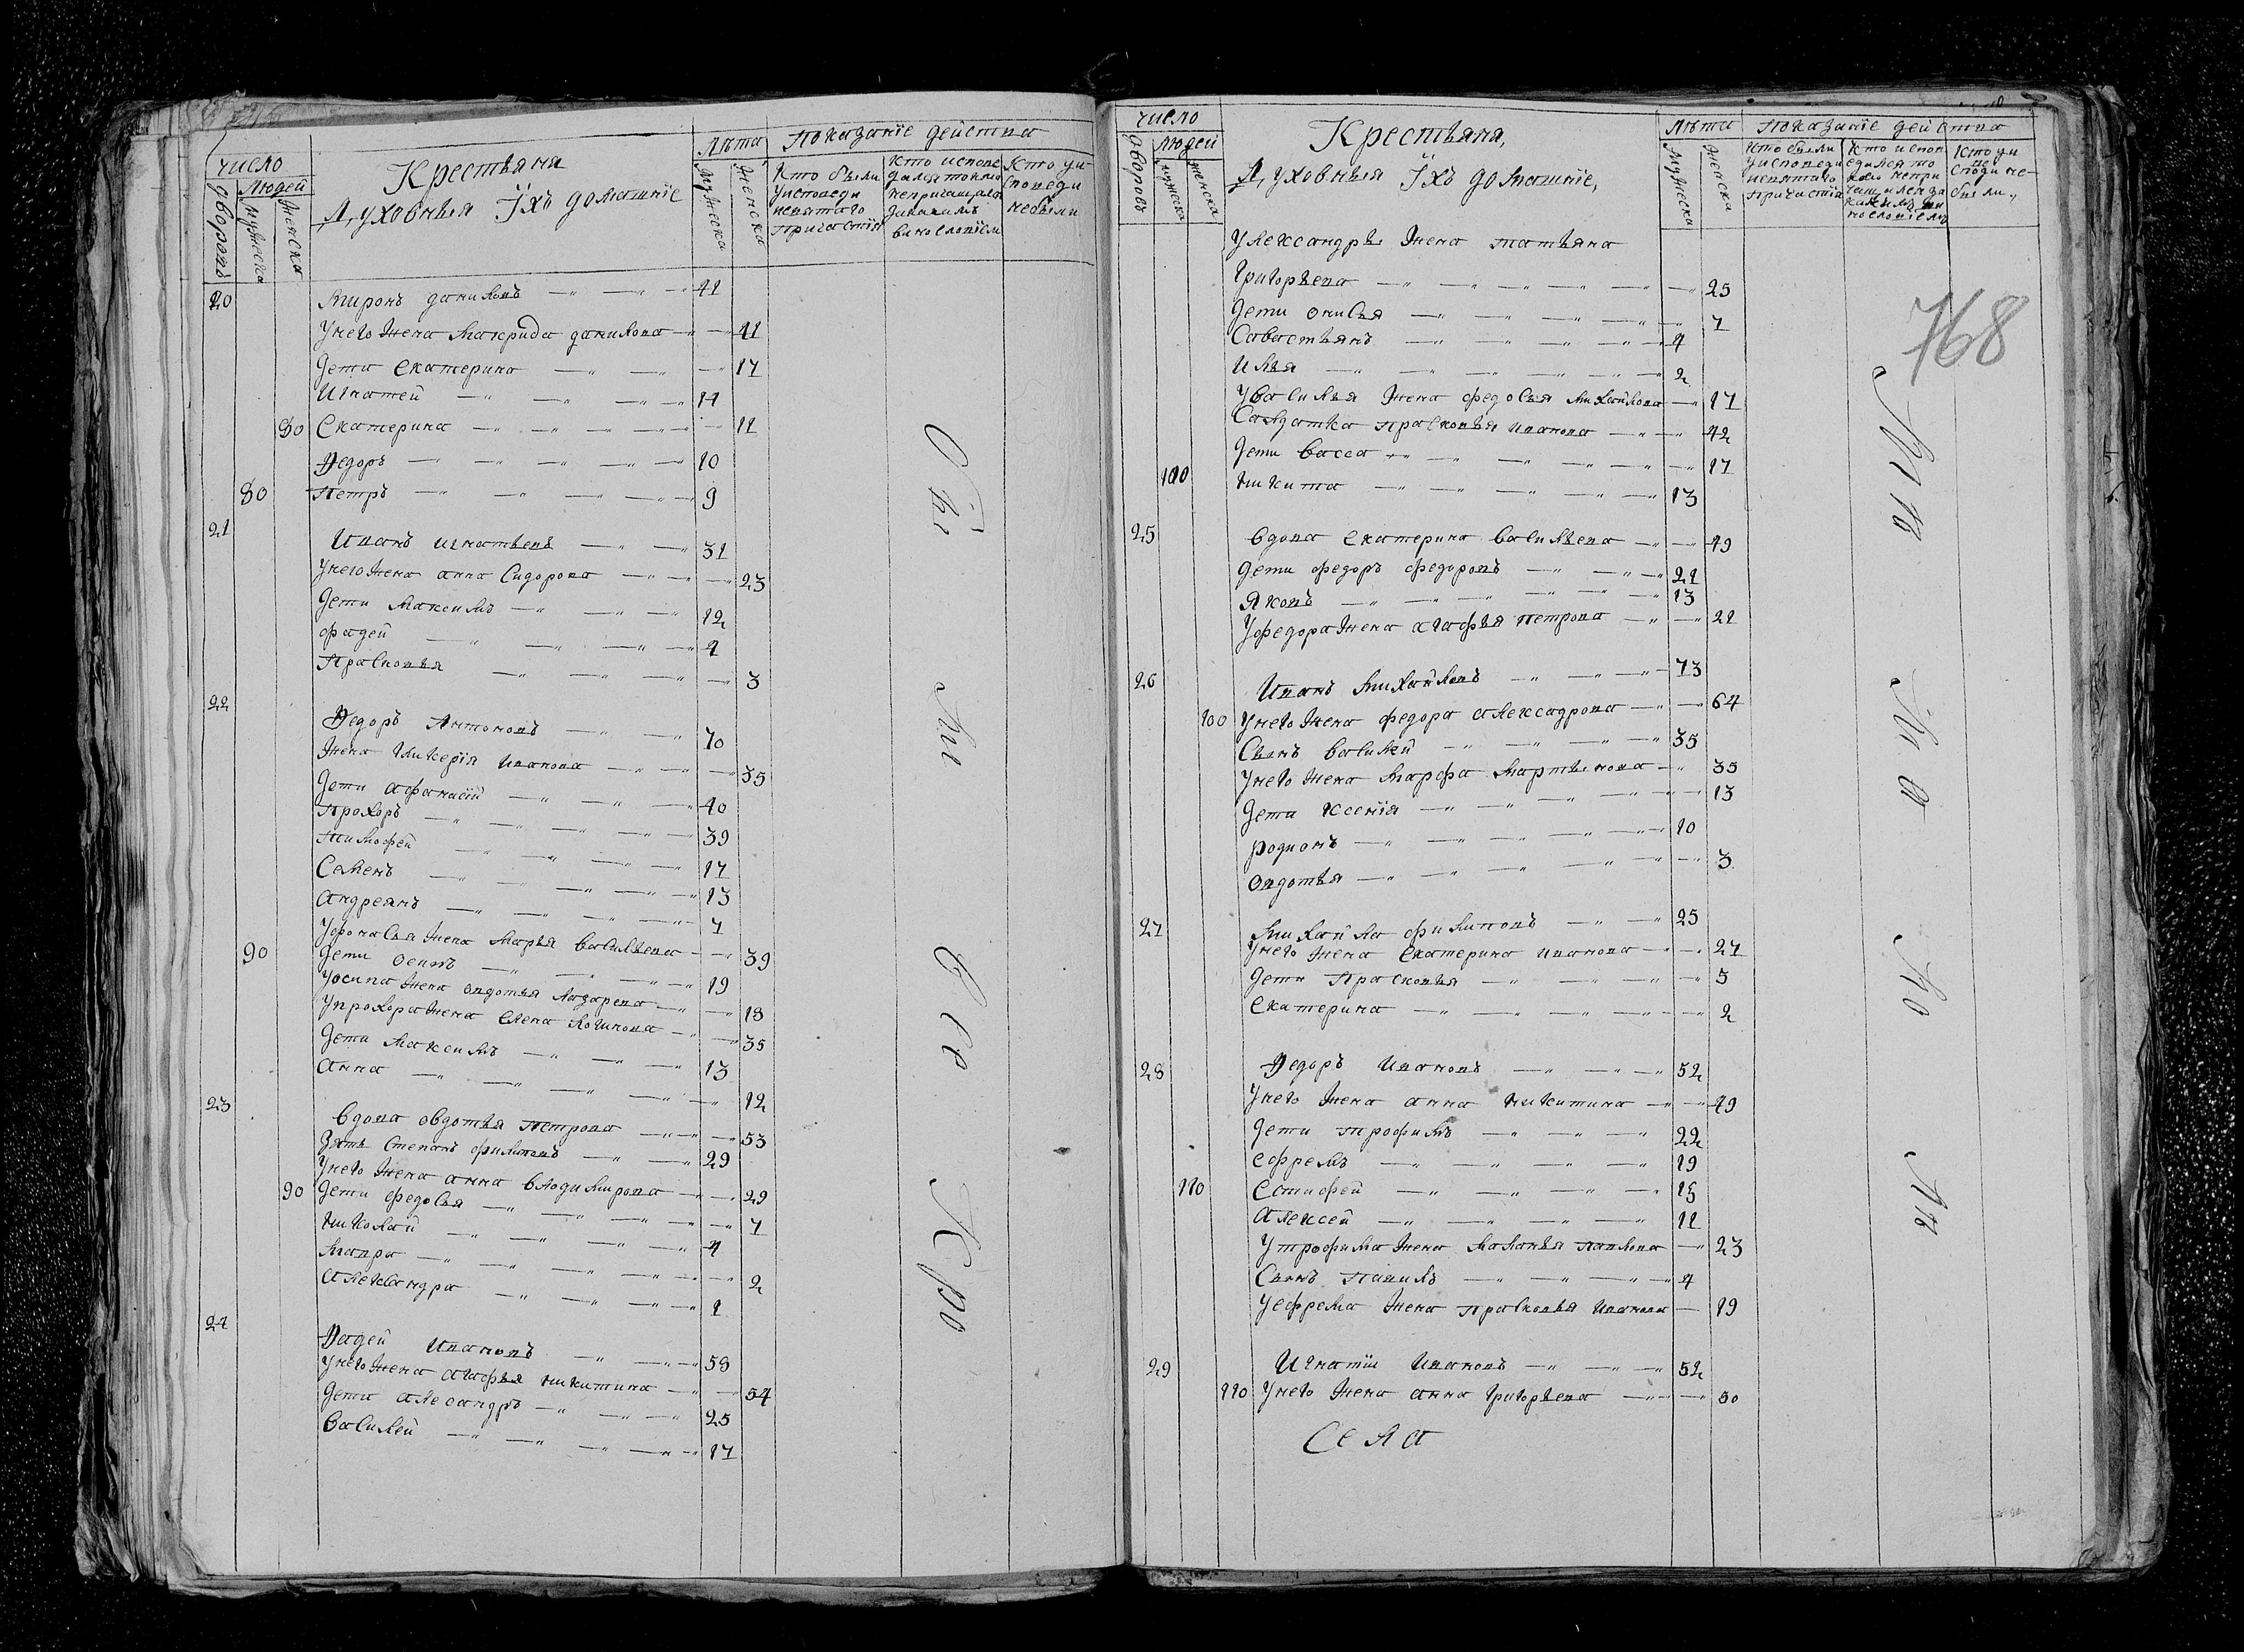 число
Крестьяня
Лѣта
Показанїе действа
дворовъ
Людей
Духовныя Їхъ домашнїе
мужеска
женска
мужеска
женска
Кто были уисповеди исвятаго Причастїя
Кто исповедался токмо непричащался
Кто уисповеди небыли
20 Миронъ даниловъ 41
Унего жена Макрида данилова 41
дети Екатерина 17
Игнатей 14
80 Екатерина 11
Федоръ 10
80 Петръ 9
21 Иванъ игнатьевъ 31
Унего жена анна Сидорова 23
дети Максимъ 12
фадей 4
Прасковья 3
22 Федоръ Антоновъ 70
жена гликерїя Иванова 35
дети афанасїй 40
Прохоръ 39
Тимофей 17
Семенъ 13
андреянъ 7
жена Марья васильева 39
90 дети осипъ 19
Уосипа жена овдотья Лазарева 18
Упрохора жена Елена Логинова 35
дети Максимъ 13
анна 12
23 вдова овдотья Петрова 53
Зять Степанъ филиповъ 29
Унего жена анна владимирова 29
90 дети федосья 7
николай 4
Мавра 2
александра 1
24 Фадей Ивановъ 58
Унего жена агафья никитина 54
дети алесандръ 25
василей 17
Сїи
Ми
Все
Кро
число
Крестьяня,
Лѣта
Показанїе действа
дворовъ
Людей
Духовныя Їхъ домашнїе,
мужеска
женска
мужеска
женска
Кто были уисповеди исвятаго Причастїя
Кто уисповеди небыли,
768
Уалександра жена татьяна
григорьева 25
дети онисья 7
Савастьянъ 4
Илья 2
Увасилья жена федосья михайлова 17
Салдатка Прасковья иванова 42
дети васса 17
100 никита 13
25 вдова екатерина васильева 49
дети федоръ федоровъ 21
Яковъ 13
Уфедора жена агафья петрова 21
26 Иванъ Михайловъ 73
100 Унего жена федора алексадрова 64
Сынъ василей 35
Унего жена Марфа Мартынова 35
дети ксенїя 13
родионъ 10
овдотья 3
27 Михайла филиповъ 25
Унего жена екатерина иванова 27
дети Прасковья 5
екатерина 2
28 Федоръ Ивановъ 52
Унего жена анна никитина 49
дети трофимъ 22
ефремъ 19
110 естифей 15
алексей 11
Утрофима жена Маланья павлова 23
Сынъ павилъ 4
Уефрема жена прасковья иванова 19
29 Игнатїи Ивановъ 52
110 Унего жена анна григорьева 50
Села